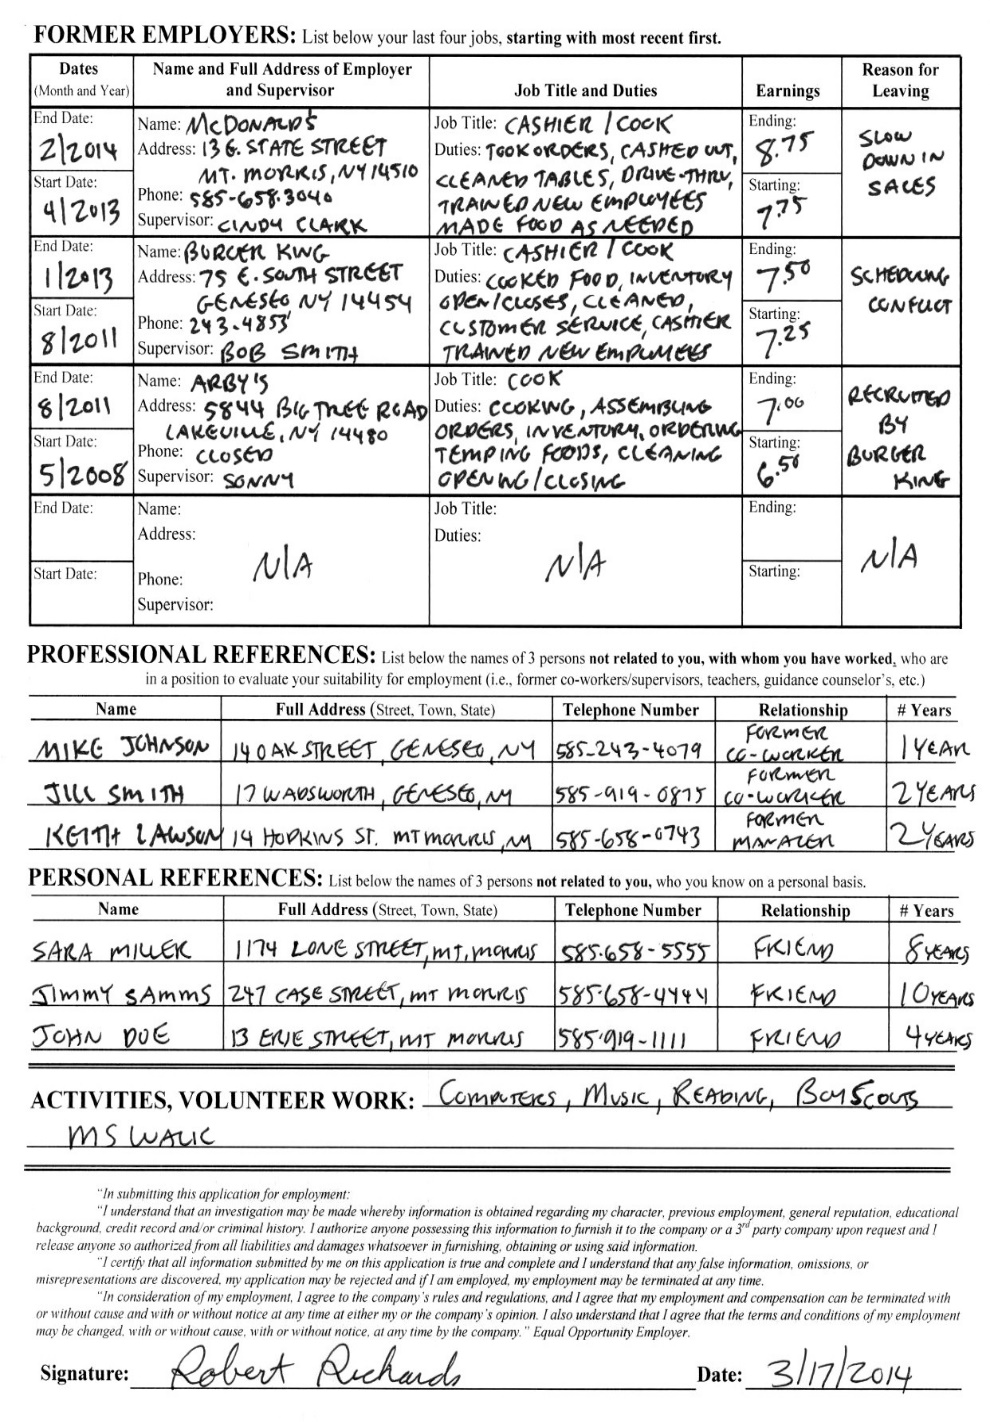 FORMER EMPLOYERS: List below your last four jobs, starting with most recent first.
Dates
(Month and Year)
Name and Full Address of Employer
and Supervisor
Job Title and Duties
Earnings
Reason for
Leaving
End Date:
2/2014
Start Date:
4/2013
Name: McDONALD'S
Address: 13 E. STATE STREET
MT. MORRIS, NY 14510
Phone: 585-658-3040
Supervisor: CINDY CLARK
Job Title: CASHIER / COOK
Duties: TOOK ORDERS, CASHED OUT,
CLEANED TABLES, DRIVE-THRU,
TRAINED NEW EMPLOYEES
MADE FOOD AS NEEDED
Ending:
8.75
Starting:
7.75
SLOW
DOWN IN
SALES
End Date:
1/2013
Start Date:
8/2011
Name: BURGER KING
Address: 75 E. SOUTH STREET
GENESEO NY 14454
Phone: 243-4853
Supervisor: BOB SMITH
Job Title: CASHIER / COOK
Duties: COOKED FOOD, INVENTORY
OPEN/CLOSES, CLEANED,
CUSTOMER SERVICE, CASHIER
TRAINED NEW EMPLOYEES
Ending:
7.50
Starting:
7.25
SCHEDULING
CONFLICT
End Date:
8/2011
Start Date:
5/2008
Name: ARBY'S
Address: 5844 BIG TREE ROAD
LAKEVILLE, NY 14480
Phone: CLOSED
Supervisor: SONNY
Job Title: COOK
Duties: COOKING, ASSEMBLING
ORDERS, INVENTORY, ORDERING
TEMPING FOODS, CLEANING
OPENING/CLOSING
Ending:
7.00
Starting:
6.50
RECRUITED
BY
BURGER
KING
End Date:
Start Date:
Name:
Address:
N/A
Phone:
Supervisor:
Job Title:
Duties:
N/A
Ending:
Starting:
N/A
PROFESSIONAL REFERENCES: List below the names of 3 persons not related to you, with whom you have worked, who are
in a position to evaluate your suitability for employment (i.e., former co-workers/supervisors, teachers, guidance counselor's, etc.)
Name Full Address (Street, Town, State) Telephone Number Relationship # Years
MIKE JOHNSON 14 OAK STREET, GENESEO, NY 585-243-4079 FORMER CO-WORKER 1 YEAR
JILL SMITH 17 WADSWORTH, GENESEO, NY 585-919-0875 FORMER CO-WORKER 2 YEARS
KEITH LAWSON 14 HOPKINS ST. MT MORRIS, NY 585-658-0743 FORMER MANAZER 2 YEARS
PERSONAL REFERENCES: List below the names of 3 persons not related to you, who you know on a personal basis.
Name Full Address (Street, Town, State) Telephone Number Relationship # Years
SARA MILLER 1174 LONE STREET, MT, MORRIS 585-658-5555 FRIEND 8 YEARS
JIMMY SAMMS 247 CASE STREET, MT MORRIS 585-658-4444 FRIEND 10 YEARS
JOHN DOE 13 ERIE STREET, MT MORRIS 585-919-1111 FRIEND 4 YEARS
ACTIVITIES, VOLUNTEER WORK: COMPUTERS, MUSIC, READING, BOY SCOUTS
MS WALK
"In submitting this application for employment:
"I understand that an investigation may be made whereby information is obtained regarding my character, previous employment, general reputation, educational
background, credit record and/or criminal history. I authorize anyone possessing this information to furnish it to the company or a 3rd party company upon request and I
release anyone so authorized from all liabilities and damages whatsoever in furnishing, obtaining or using said information.
"I certify that all information submitted by me on this application is true and complete and I understand that any false information, omissions, or
misrepresentations are discovered, my application may be rejected and if I am employed, my employment may be terminated at any time.
"In consideration of my employment, I agree to the company's rules and regulations, and I agree that my employment and compensation can be terminated with
or without cause and with or without notice at any time at either my or the company's opinion. I also understand that I agree that the terms and conditions of my employment
may be changed, with or without cause, with or without notice, at any time by the company." Equal Opportunity Employer.
Signature: Robert Richards Date: 3/17/2014